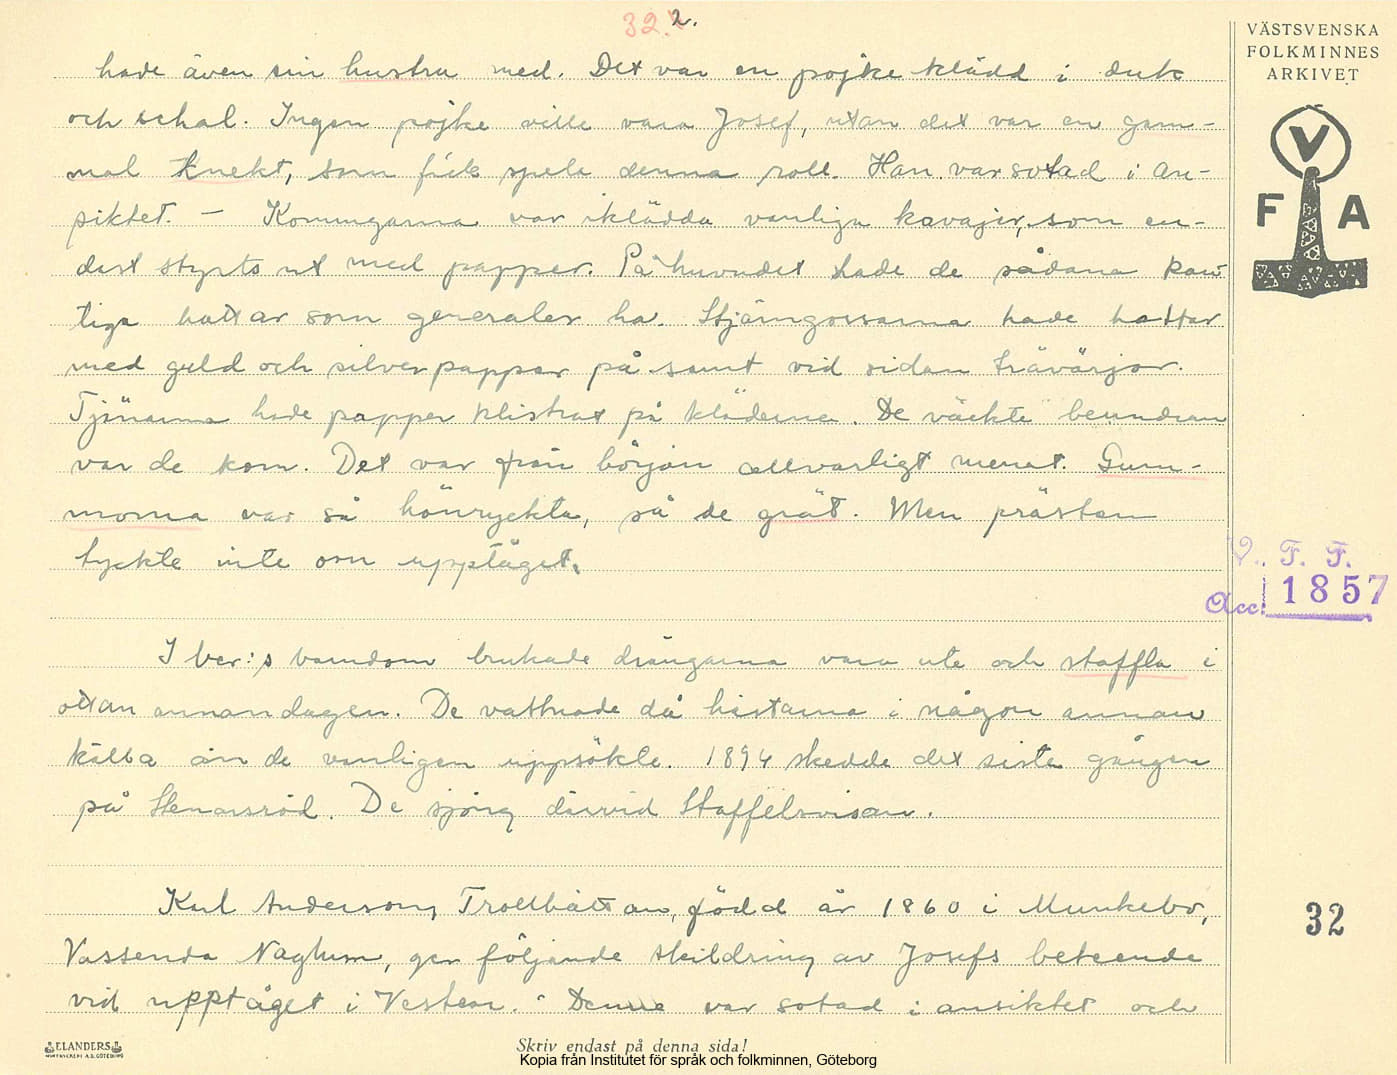 32. 2.
VÄSTSVENSKA
FOLKMINNES
ARKIVET
V
F A
hade även sin hustru med. Det var en pojke klädd i duk
och schal. Ingen pojke ville vara Josef, utan det var en gam-
mal knekt, som fick spela denna roll. Han var sotad i an-
siktet. – Konungarna var iklädda vanliga kavajer, som en-
dast styrts ut med papper. På huvudet hade de sådana kan-
tiga hattar som generaler ha. Stjärngossarna hade hattar
med guld och silverpapper på samt vid sidan trävärjor.
Tjänarna hade papper klistrat på kläderna. De väckte beundran
var de kom. Det var från början allvarligt menat. Gum-
morna var så hänryckta, så de grät. Men prästen
tyckte inte om upptåget.
V. F. F.
Acc. 1857
I ber:s barndom brukade drängarna vara ute och staffla i
ottan annandagen. De vattnade då hästarna i någon annan
källa än de vanligen uppsökte. 1894 skedde det sista gången
på Stenarsröd. De sjöng därvid Staffelsvisan.
Karl Anderson, Trollhättan, född år 1860 i Munkebo,
Vassenda Naglum, ger följande skildring av Josefs beteende
vid upptåget i Vesten. Denne var sotad i ansiktet och
32
ELANDERS
Skriv endast på denna sida!
Kopia från Institutet för språk och folkminnen, Göteborg